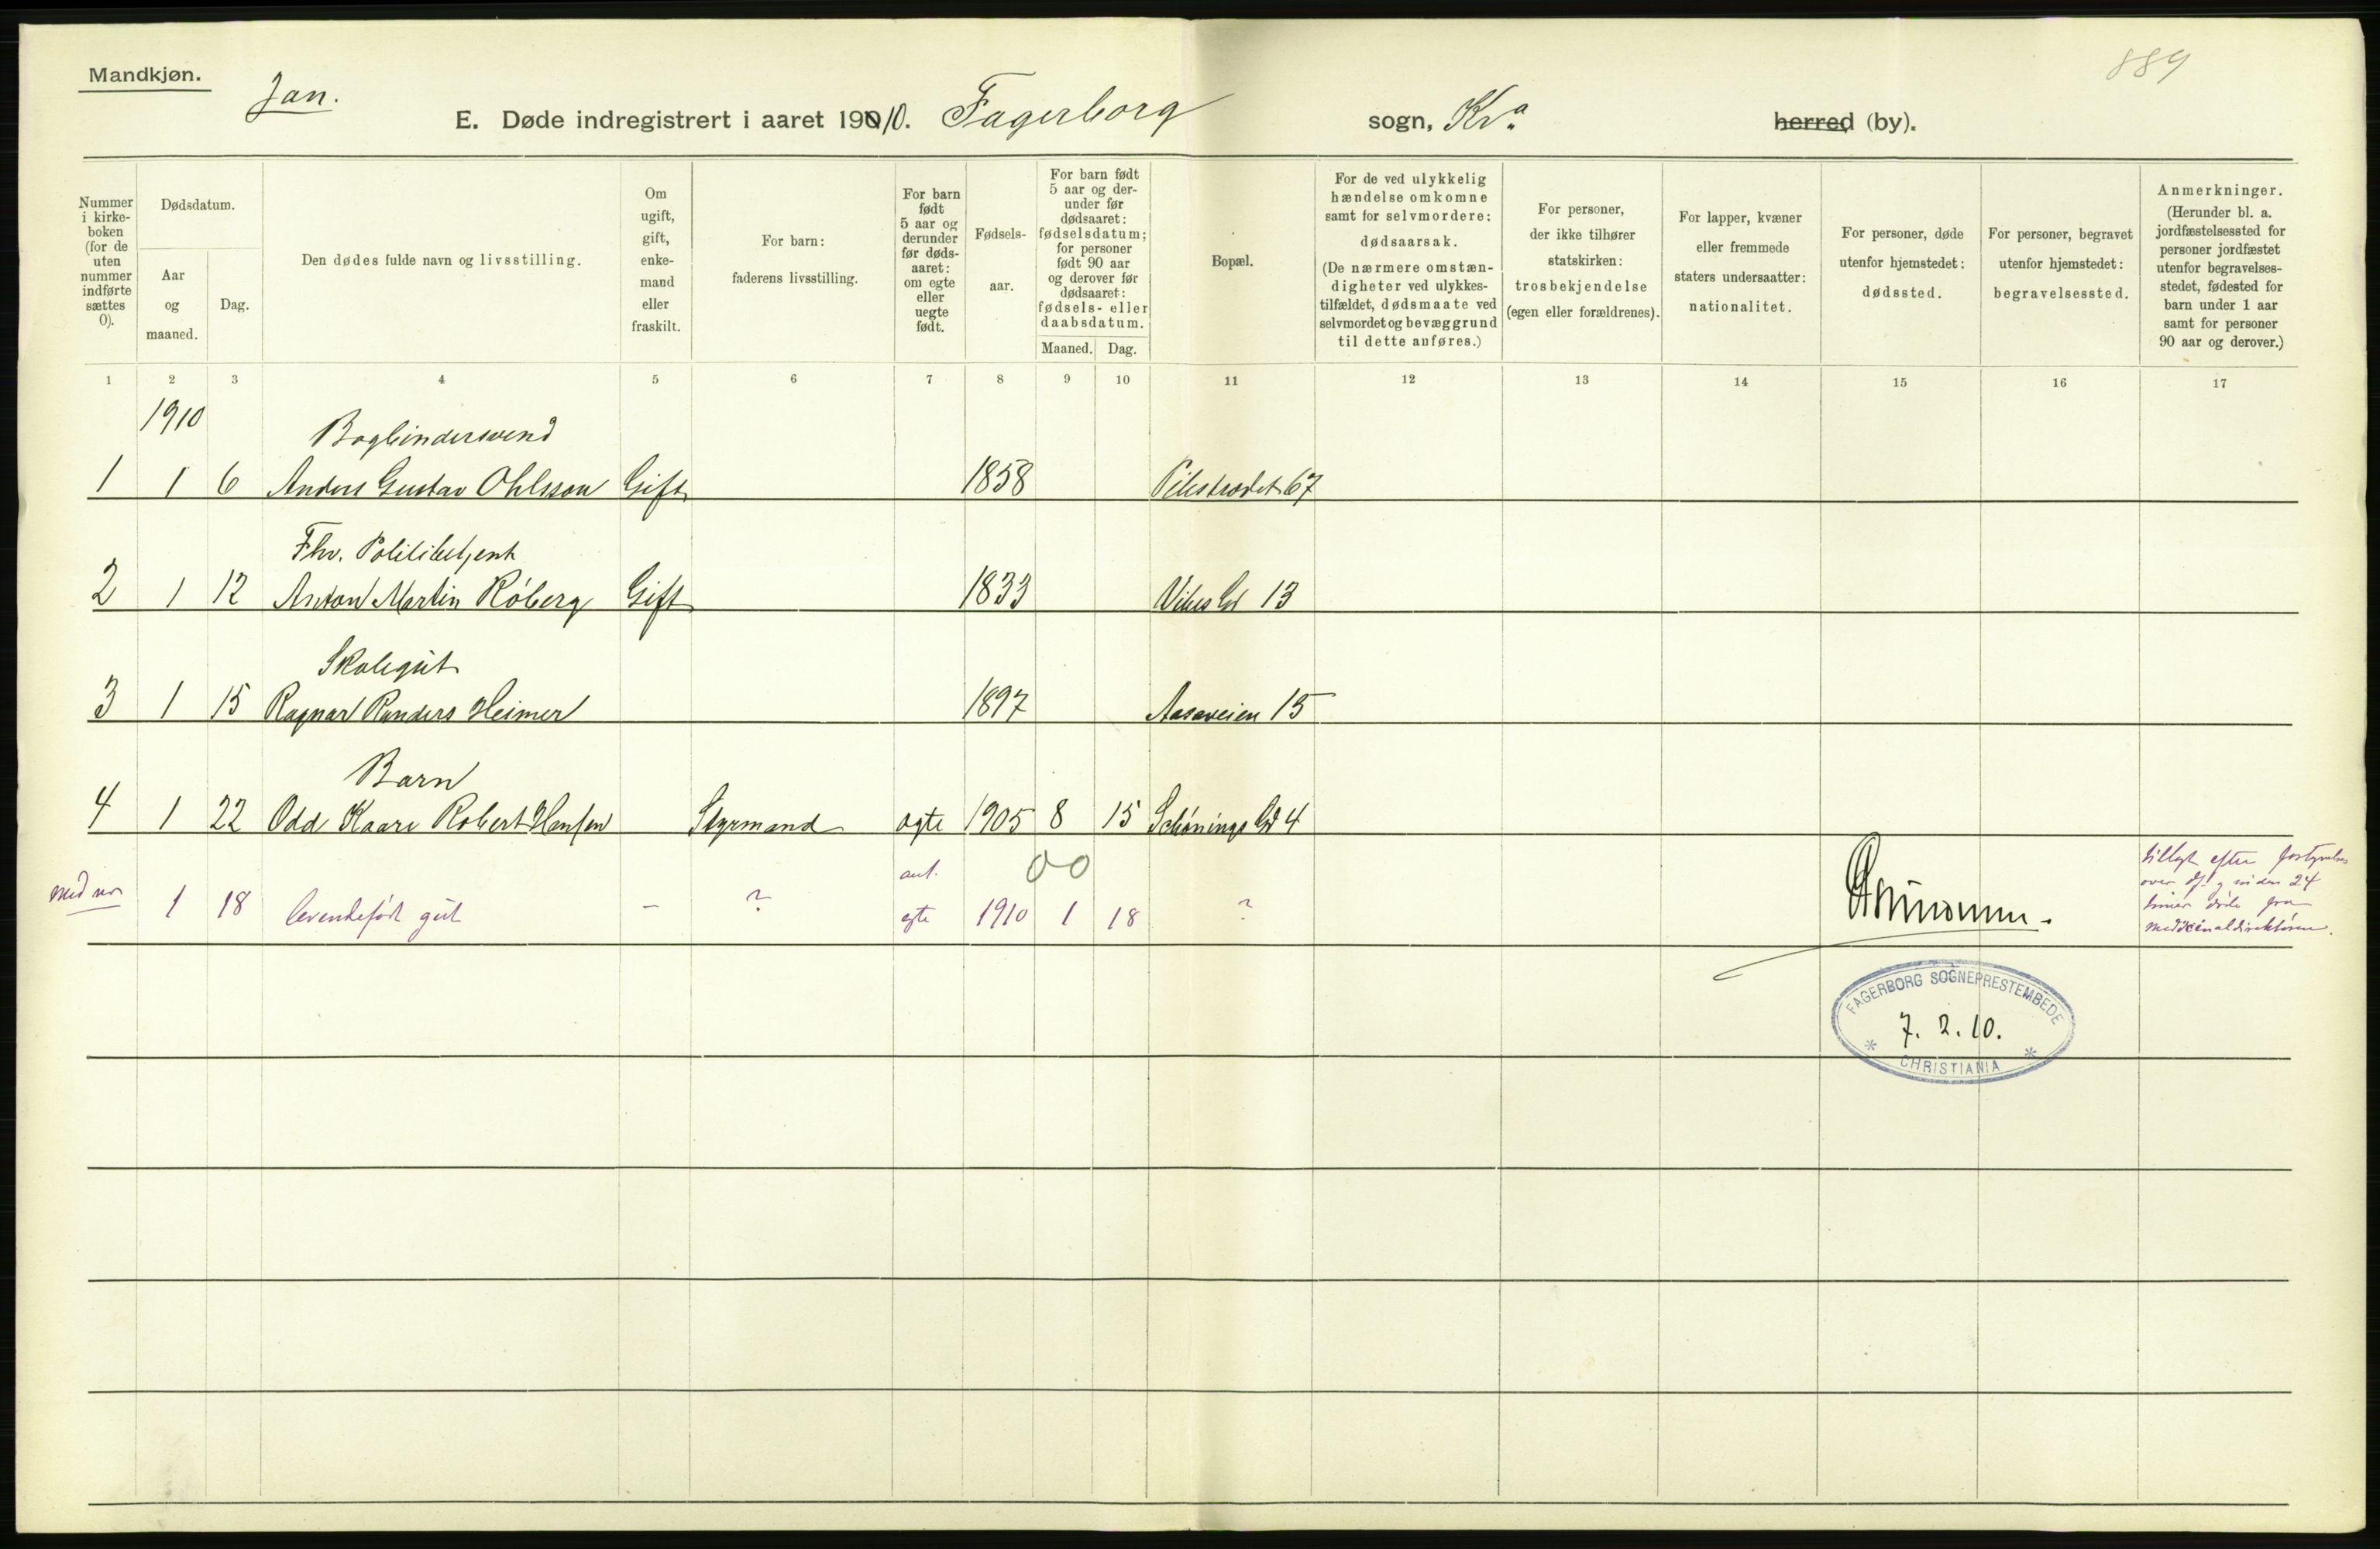 Mandkjøn.
Jan.
889
E. Døde indregistrert i aaret 1910. Fagerborg sogn, Kr.a herred (by).
Nummer i kirkeboken (for de uten nummer indførte sættes 0).
Dødsdatum.
Aar og maaned.
Dag.
Den dødes fulde navn og livsstilling.
Om ugift, gift, enkemand eller fraskilt.
For barn: faderens livsstilling.
For barn født 5 aar og derunder før dødsaaret: om egte eller uegte født.
Fødselsaar.
For barn født 5 aar og derunder før dødsaaret: fødselsdatum; for personer født 90 aar og derover før dødsaaret: fødsels- eller daabsdatum.
Maaned. Dag.
Bopæl.
For de ved ulykkelig hændelse omkomne samt for selvmordere: dødsaarsak. (De nærmere omstændigheter ved ulykkestilfældet, dødsmaate ved selvmordet og bevæggrund til dette anføres.)
For personer, der ikke tilhører statskirken: trosbekjendelse (egen eller forældrenes).
For lapper, kvæner eller fremmede staters undersaatter: nationalitet.
For personer, døde utenfor hjemstedet: dødssted.
For personer, begravet utenfor hjemstedet: begravelsessted.
Anmerkninger. (Herunder bl. a. jordfæstelsessted for personer jordfæstet utenfor begravelsesstedet, fødested for barn under 1 aar samt for personer 90 aar og derover.)
1 2 3 4 5 6 7 8 9 10 11 12 13 14 15 16 17
1910
Bogbindersvend
1 1 6 Anders Gustav Ohlsson Gift 1858 Pilestrædet 67
Fhv. Politibetjent
2 1 12 Anton Martin Röberg Gift 1833 Vibes Gd 13
Skolegut
3 1 15 Ragnar Randers Heimer 1897 Aasaveien 15
Barn
4 1 22 Odd Kaare Robert Hansen Styrmand ægte 1905 8 15 Schönings Gd 4
00
ant.
1 18 levendefødt gut - ? egte 1910 1 18 ?
tillagt efter
24
timer døde fra
medicinaldirektøren.
FAGERBORG SOGNEPRESTEMBEDE
7. 2. 10.
* CHRISTIANIA *